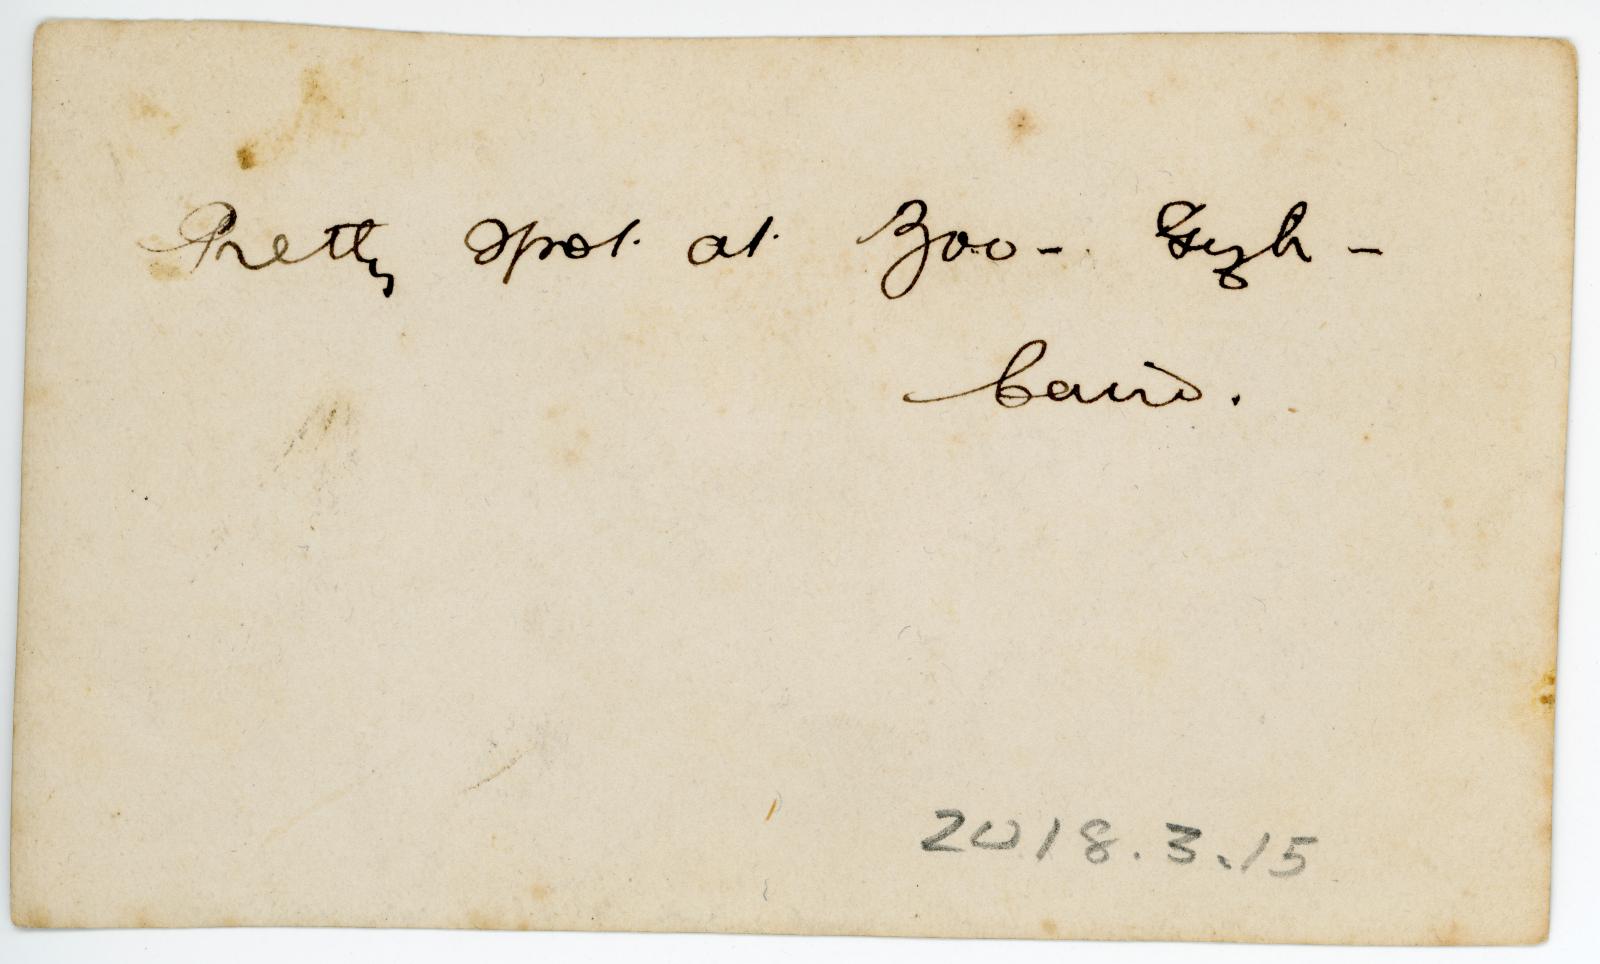 Pretty spot at Zoo - Gyzh -
Cairo.
2018.3.15